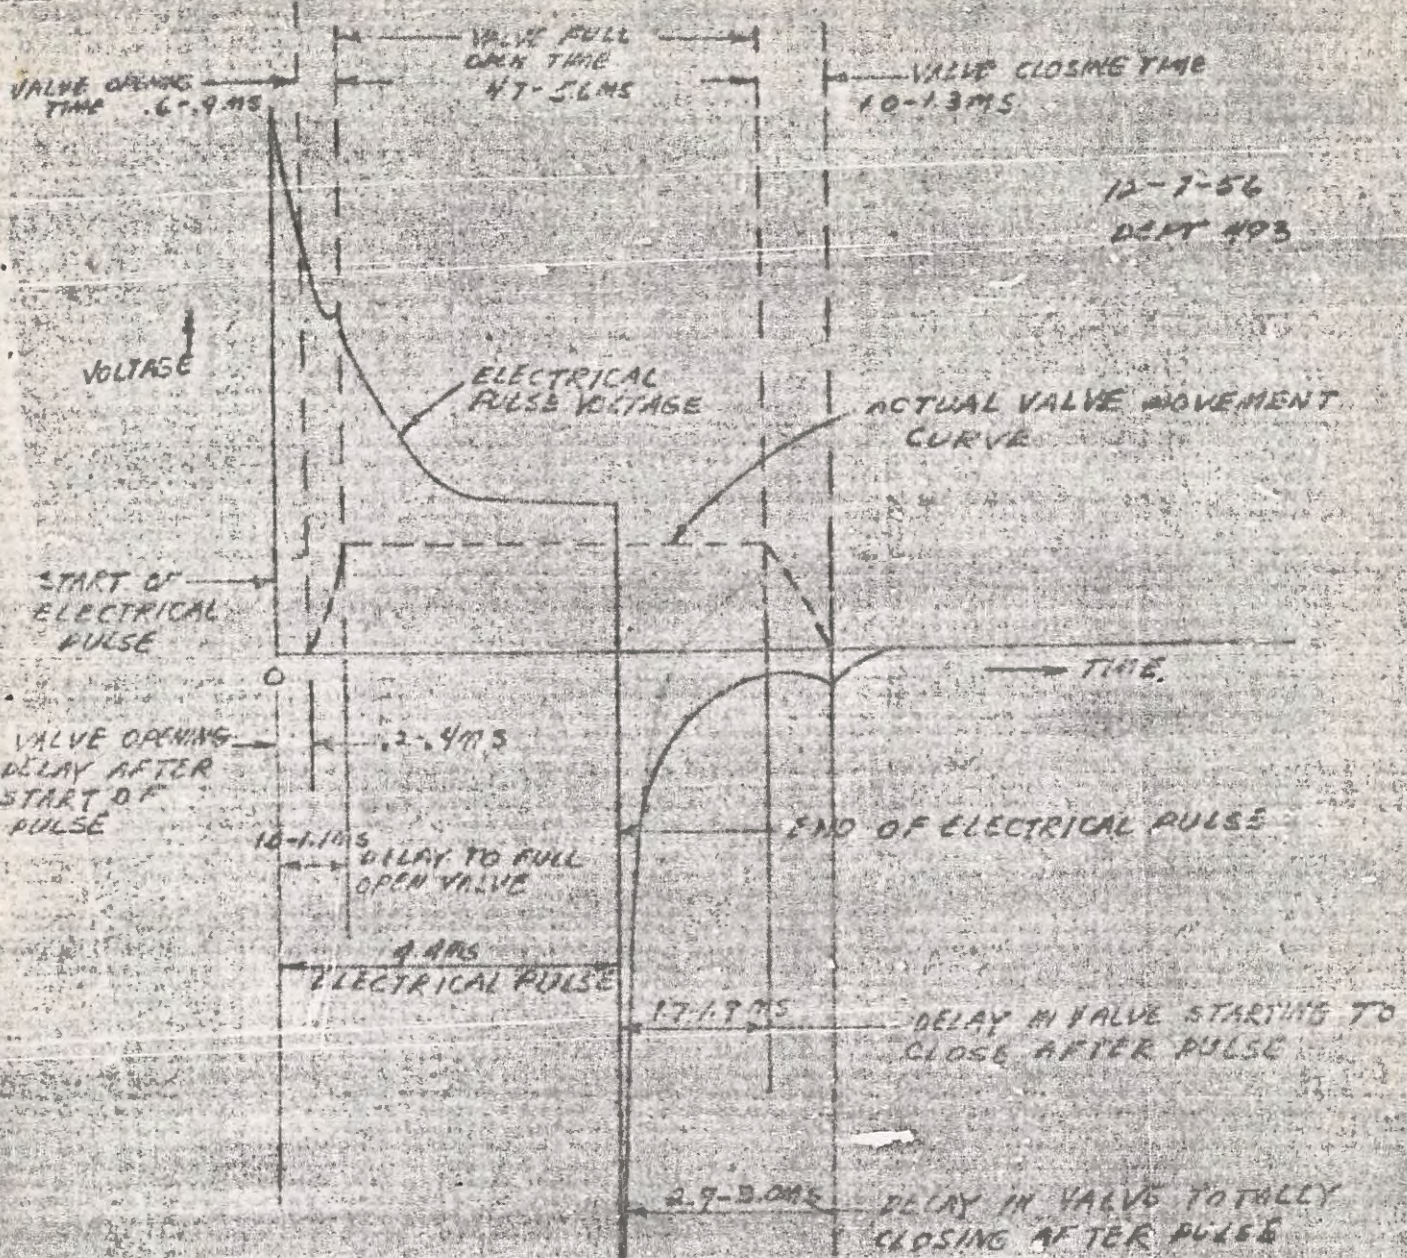 VALVE FULL
OPEN TIME
4.7-5.6MS
VALVE OPENING
TIME .6-.9MS
VALVE CLOSING TIME
1.0-1.3MS
DEPT 493
VOLTAGE
ELECTRICAL
PULSE VOLTAGE
ACTUAL VALVE MOVEMENT
CURVE
START OF
ELECTRICAL
PULSE
O
TIME.
VALVE OPENING
DELAY AFTER
START OF
PULSE
.2-.4MS
1.0-1.1MS
DELAY TO FULL
OPEN VALVE
END OF ELECTRICAL PULSE
4.4MS
ELECTRICAL PULSE
1.7-1.9MS
DELAY IN VALVE STARTING TO
CLOSE AFTER PULSE
2.9-3.0MS
DELAY IN VALVE TOTALLY
CLOSING AFTER PULSE